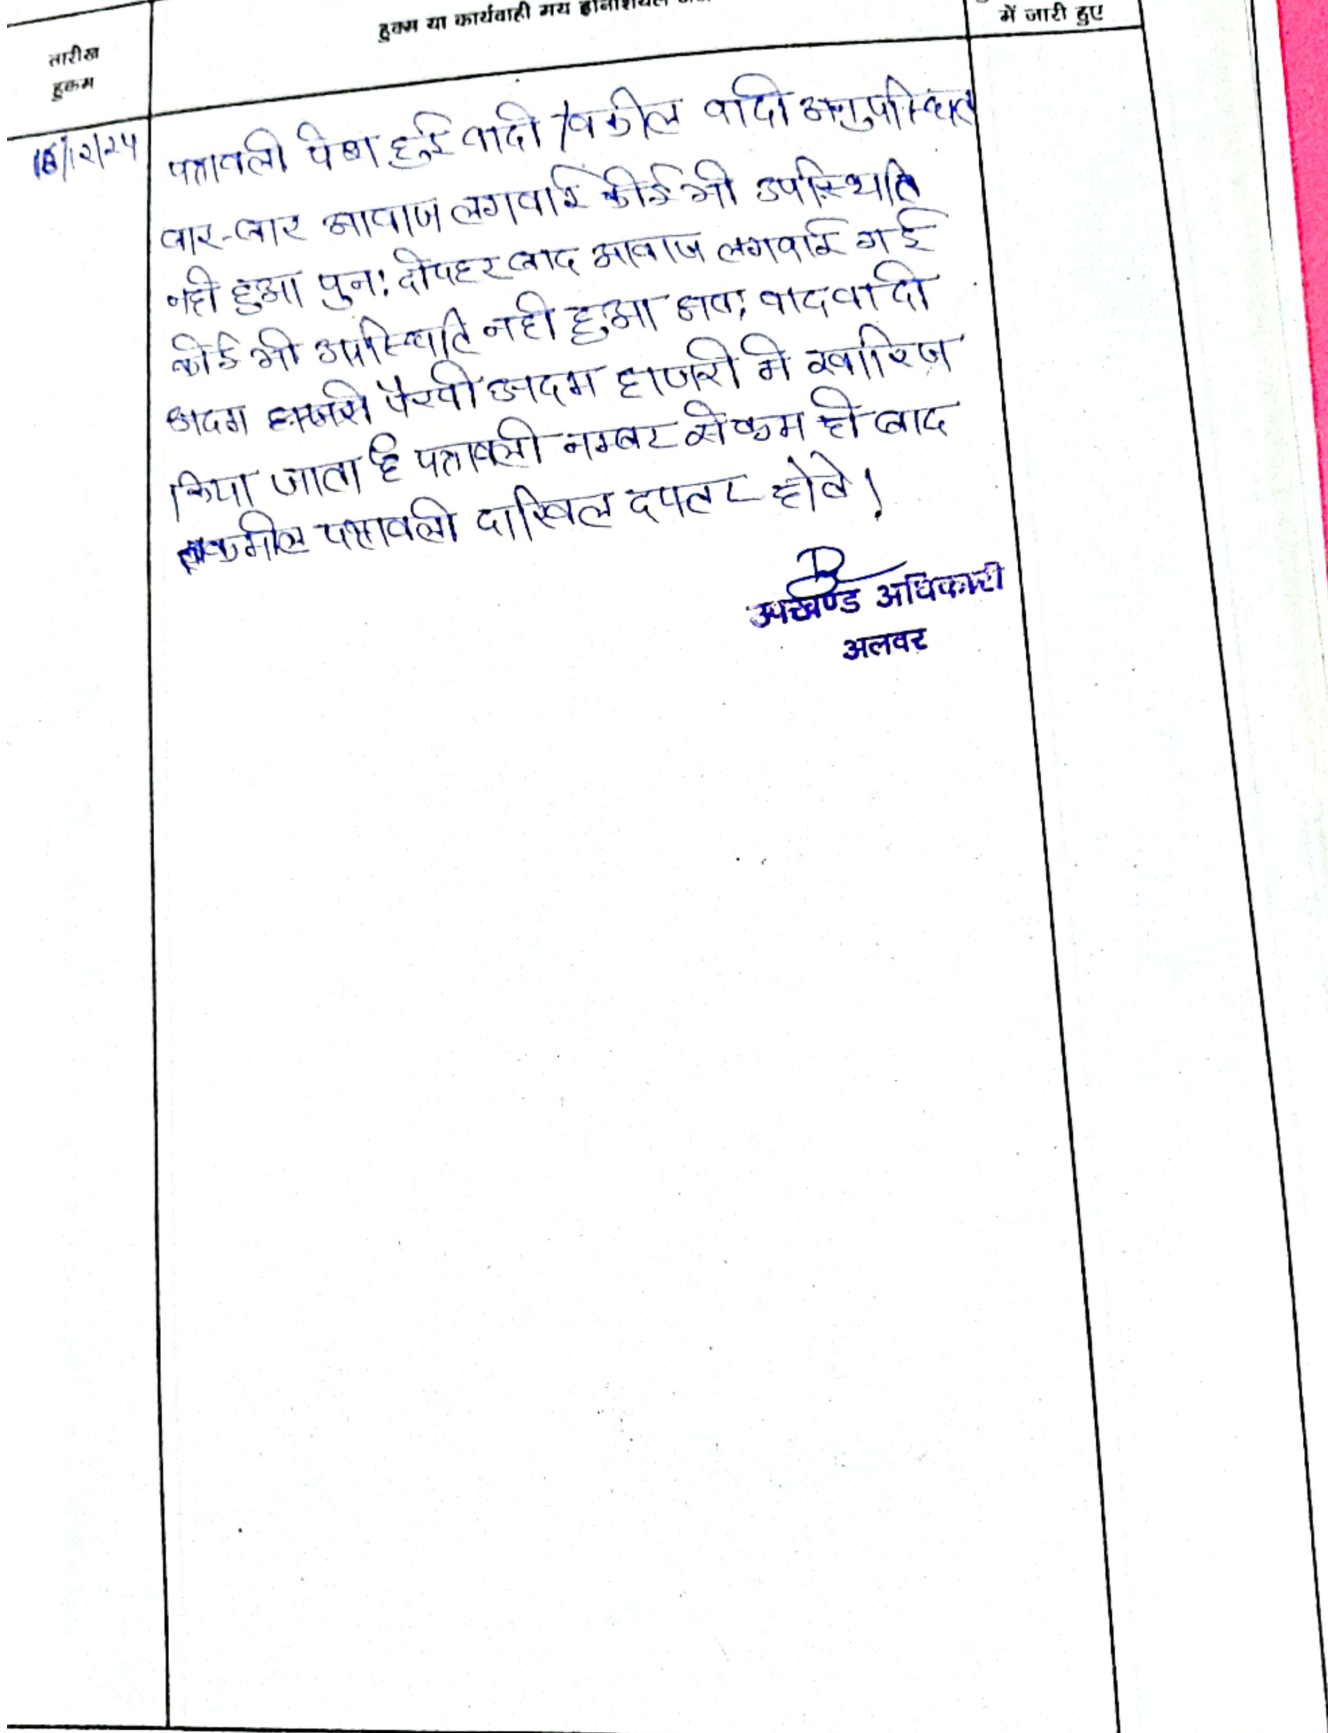 हुक्म या कार्यवाही मय
में जारी हुए
तारीख
हुकम
18/12/24
पत्रावली पेश हुई वादी/वकील वादी अनुपस्थित
बार-बार आवाज लगवाई कोई भी उपस्थिति
नही हुआ पुन: दोपहर बाद आवाज लगवाई गई
कोई भी उपस्थिति नही हुआ अत: वादवादी
अदम हाजरी पैरवी अदम हाजरी मे खारिज
किया जाता है पत्रावली नम्बर से कम हो बाद
तकमील पत्रावली दाखिल दफ्तर होवे।
उपखण्ड अधिकारी
अलवर